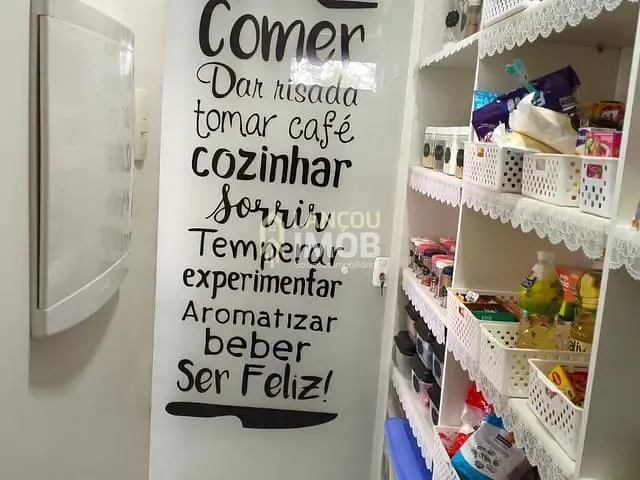 Comer
Dar risada
tomar café
cozinhar
Sorrir
Temperar
experimentar
Aromatizar
beber
Ser Feliz!
LANÇOU
IMOB